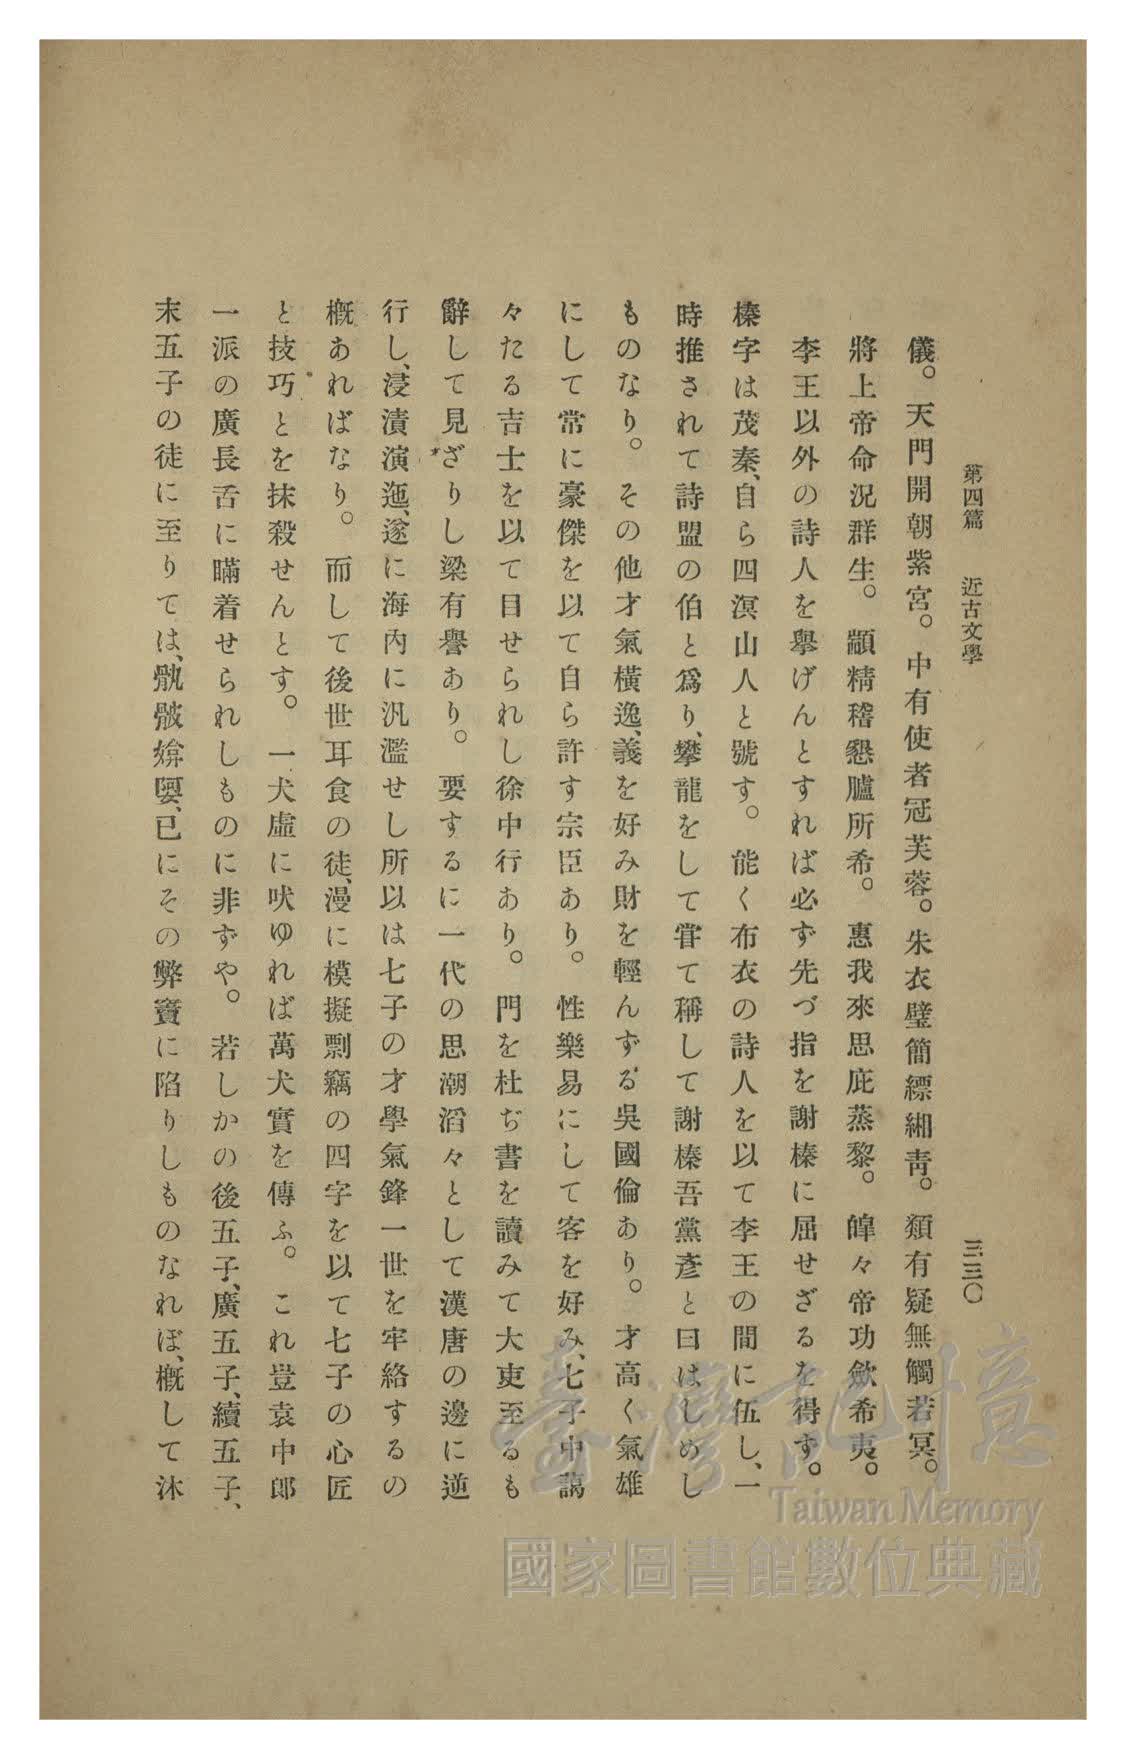 第四篇　近古文學　三三〇
儀。天門開朝紫宮。中有使者冠芙蓉。朱衣璧簡縹緗青。類有疑無觸若冥。
將上帝命況群生。顓精稽懇臚所希。惠我來思庇蒸黎。皥々帝功歛希夷。
李王以外の詩人を擧げんとすれば必ず先づ指を謝榛に屈せざるを得す。
榛字は茂秦、自ら四溟山人と號す。能く布衣の詩人を以て李王の間に伍し、一
時推されて詩盟の伯と爲り、攀龍をして甞て稱して謝榛吾黨彥と曰はしめし
ものなり。その他才氣橫逸、義を好み財を輕んずる吳國倫あり。才高く氣雄
にして常に豪傑を以て自ら許す宗臣あり。性樂易にして客を好み、七子中藹
々たる吉士を以て目せられし徐中行あり。門を杜ぢ書を讀みて大吏至るも
辭して見ざりし梁有譽あり。要するに一代の思潮滔々として漢唐の邊に逆
行し、浸漬演迤、遂に海內に汎濫せし所以は七子の才學氣鋒一世を牢絡するの
概あればなり。而して後世耳食の徒、漫に模擬剽竊の四字を以て七子の心匠
と技巧とを抹殺せんとす。一犬虛に吠ゆれば萬犬實を傳ふ。これ豈袁中郎
一派の廣長舌に瞞着せられしものに非ずや。若しかの後五子、廣五子、續五子、
末五子の徒に至りては、骫骳媕娿、已にその弊竇に陷りしものなれぼ、概して沐
臺灣記憶
Taiwan Memory
國家圖書館數位典藏